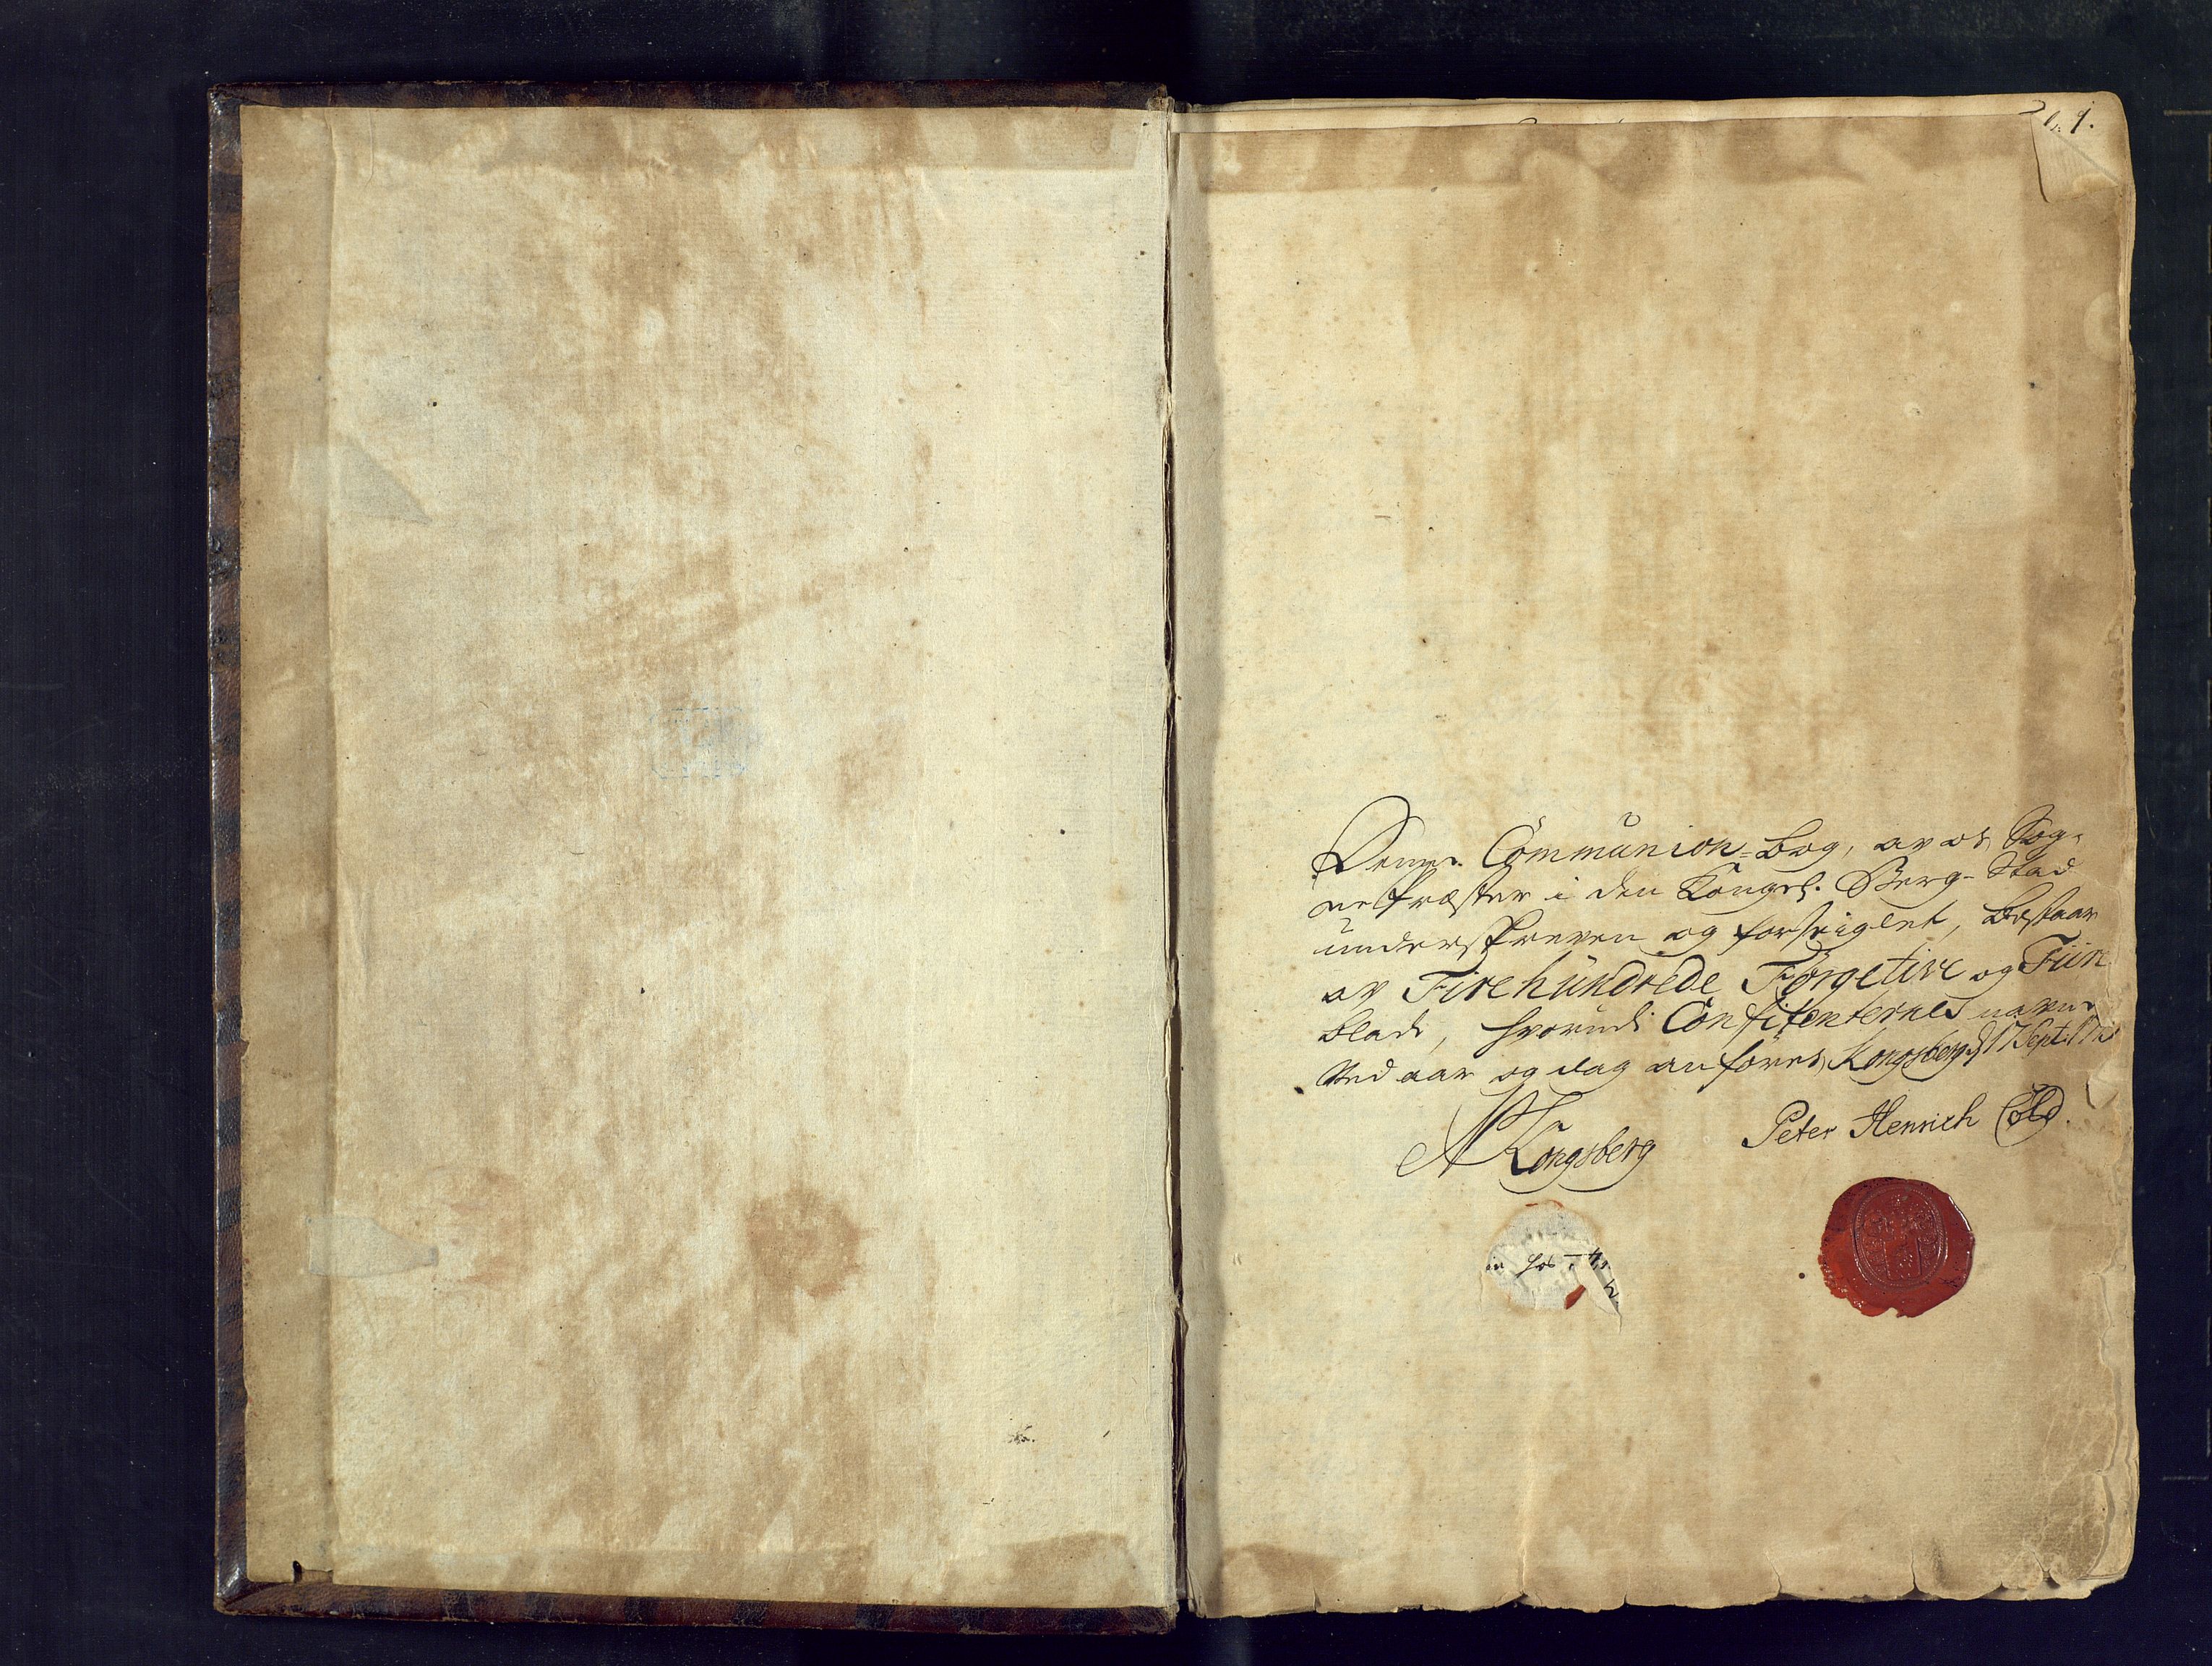 1.
Denne Communion-Bog, av os Sog-
nepræster i den Kongel. Berg-Stad
underskreven og forseiglet, bestaar
av Firehundrede Förgetive og Fiire
blade, hvorudi Confitenternes navne
ved aar og dag anföres, Kongsberg d 17 Sept:
A Kongsberg
Peter Henrich